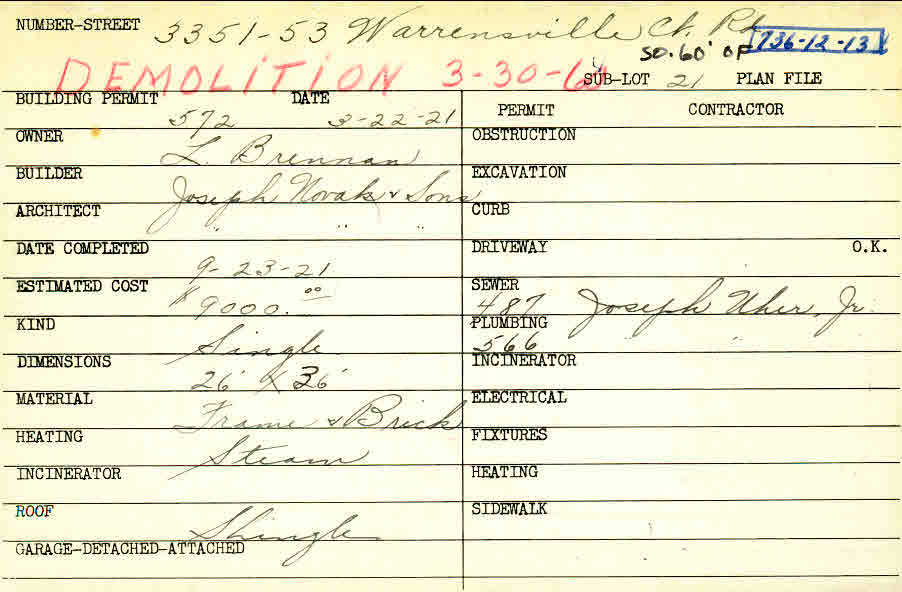 NUMBER-STREET 3351-53 Warrensville Ct. Rd.
SO. 60' OF 736-12-13
DEMOLITION 3-30-60 SUB-LOT 21 PLAN FILE
BUILDING PERMIT 572 DATE 3-22-21
PERMIT CONTRACTOR
OWNER L. Brennan
OBSTRUCTION
BUILDER Joseph Novak & Sons
EXCAVATION
ARCHITECT " " "
CURB
DATE COMPLETED 9-23-21
DRIVEWAY O.K.
ESTIMATED COST $9000.00
SEWER 487 Joseph Uher, Jr.
KIND Single
PLUMBING 566 " " "
DIMENSIONS 26' X 36'
INCINERATOR
MATERIAL Frame & Brick
ELECTRICAL
HEATING Steam
FIXTURES
INCINERATOR
HEATING
ROOF Shingle
SIDEWALK
GARAGE-DETACHED-ATTACHED